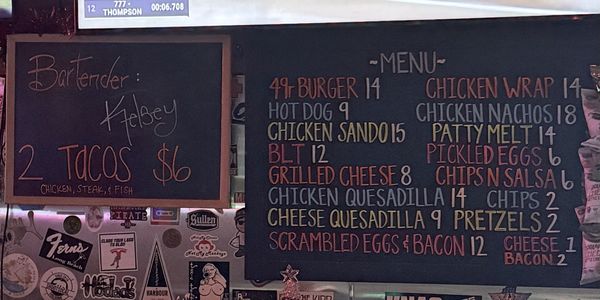 12 777 THOMPSON 00:06.708
Bartender:
Kelsey
2 TACOS $6
CHICKEN, STEAK, & FISH
~MENU~
49r BURGER 14
HOT DOG 9
CHICKEN SANDO 15
BLT 12
GRILLED CHEESE 8
CHICKEN QUESADILLA 14
CHEESE QUESADILLA 9
SCRAMBLED EGGS & BACON 12
CHICKEN WRAP 14
CHICKEN NACHOS 18
PATTY MELT 14
PICKLED EGGS 6
CHIPS N SALSA 6
CHIPS 2
PRETZELS 2
CHEESE 1
BACON 2
PIRATE
Sullen
Fern's
HARBOUR